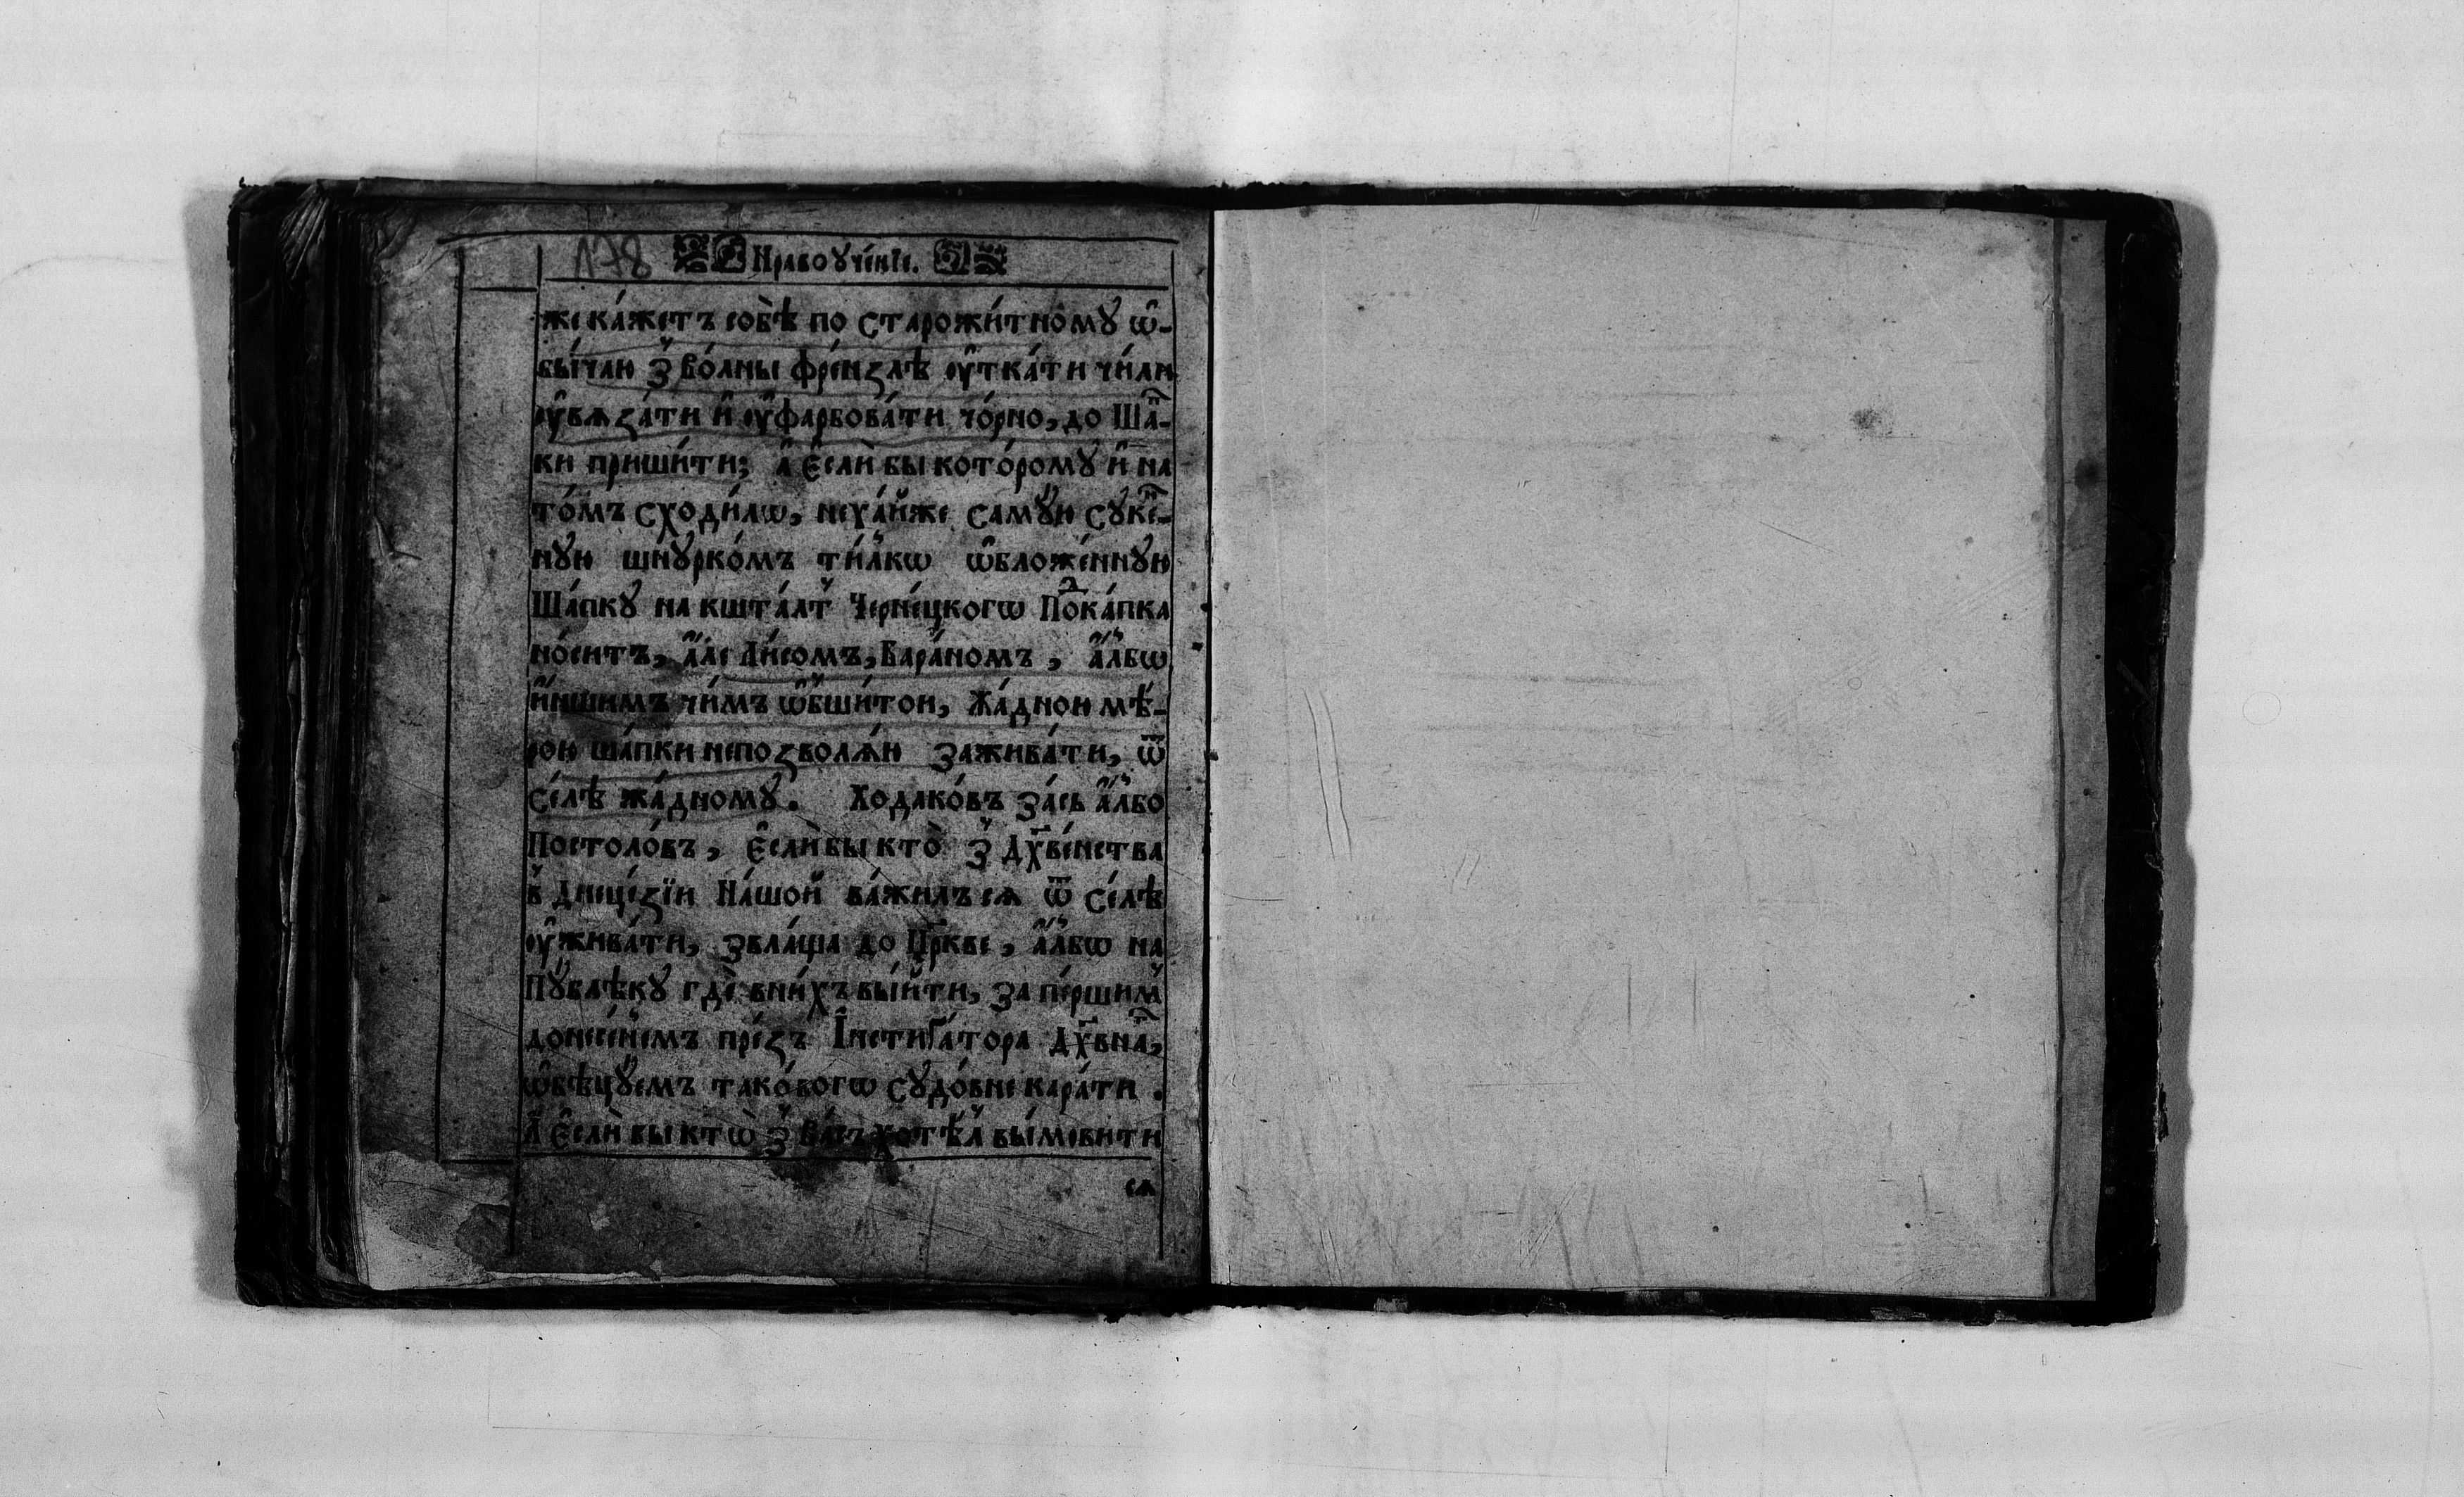 178 Нравоꙋче́нїе.
же ка́жетъ собѣ̀ по старожи́тномꙋ ѡ҆-
бы́чаю з̾ во́лны фре́нзлѣ оу҆тка́ти чи́ли
оу҆вѧза́ти и҆ оу҆фарбова́ти чо́рно, до Ша́п-
ки приши́ти; а҆ є҆слѝ бы кото́ромꙋ и҆ на
то́мъ сходи́лѡ, неха́йже самꙋ́ю сꙋке́н-
нꙋю шнꙋрко́мъ ти́лкѡ ѡ҆бложе́ннꙋю
Ша́пкꙋ на кшта́лт̾ Черне́цкогѡ Подка́пка
но́ситъ, а҆́ле Ли́сомъ, Бара́номъ, а҆́лбѡ
и҆́ншимъ чи́мъ ѡ҆бши́тои, Жа́дною мѣ́-
рою ша́пки непозволѧ́ю зажива́ти, ѿ
се́лѣ жа́дномꙋ. Ходако́въ за́сь а҆́лбо
Постоло́въ, є҆слѝ бы ктѐ з̾ Дх҃ве́нства
в̾ Дїеце́зїи На́шой ва́жилъсѧ ѿ се́лѣ
оу҆жива́ти, звла́ща до Цр҃кве, а҆́лбѡ на
Пꙋ́блѣкꙋ гдѐ вни́хъ вы́йти, за пе́ршим̾
донесе́нїемъ пре́зъ І҆нстиґа́тора Дх҃вна,
ѡ҆бѣцꙋ́емъ тако́вогѡ сꙋдо́вне кара́ти.
А҆ є҆слѝ бы ктѡ̀ з̾ ва́съ хотѣ́л̾ вы́мовити
сѧ